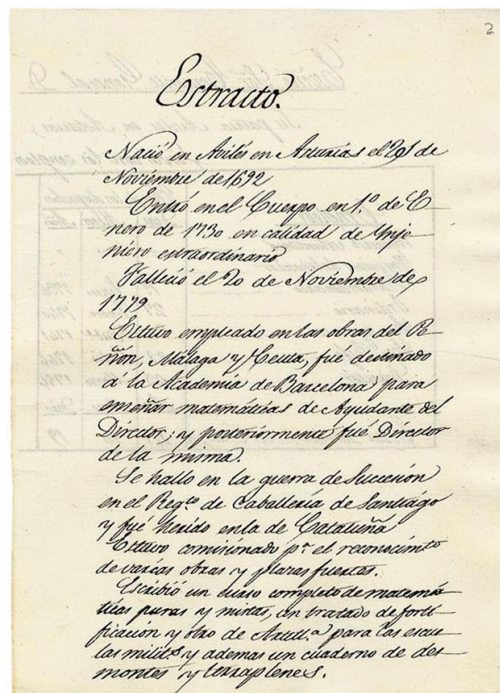 2
Estracto.
Nació en Avilés en Asturias el 29 de
Noviembre de 1692
Entró en el Cuerpo en 1.º de E-
nero de 1730 en calidad de Ynje-
niero extraordinario
Falleció el 20 de Noviembre de
1779
Estuvo empleado en las obras del Pe-
ñón, Málaga y Ceuta, fué destinado
á la Academia de Barcelona para
enseñar matemáticas de Ayudante del
Director; y posteriormente fué Director
de la misma.
Se halló en la guerra de Sucesión
en el Reg.to de Caballería de Santiágo
y fué herido en la de Cataluña
Estuvo comisionado p.r el reconocim.to
de varias obras y plazas fuertes.
Escribió un curso completo de matemá-
ticas puras y mistas, un tratado de forti-
ficación y otro de Artill.a para las escue-
las milit.s y ademas un cuaderno de des-
montes y terraplenes.